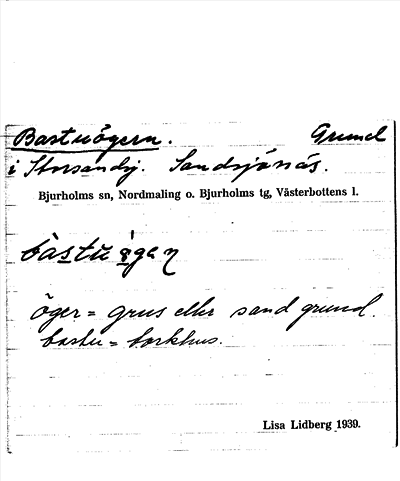 Bastuögern. Grund
i Storsandsj. Sandsjönäs.
Bjurholms sn, Nordmaling o. Bjurholms tg, Västerbottens l.
öger = grus eller sand grund.
bastu = torkhus.
Lisa Lidberg 1939.